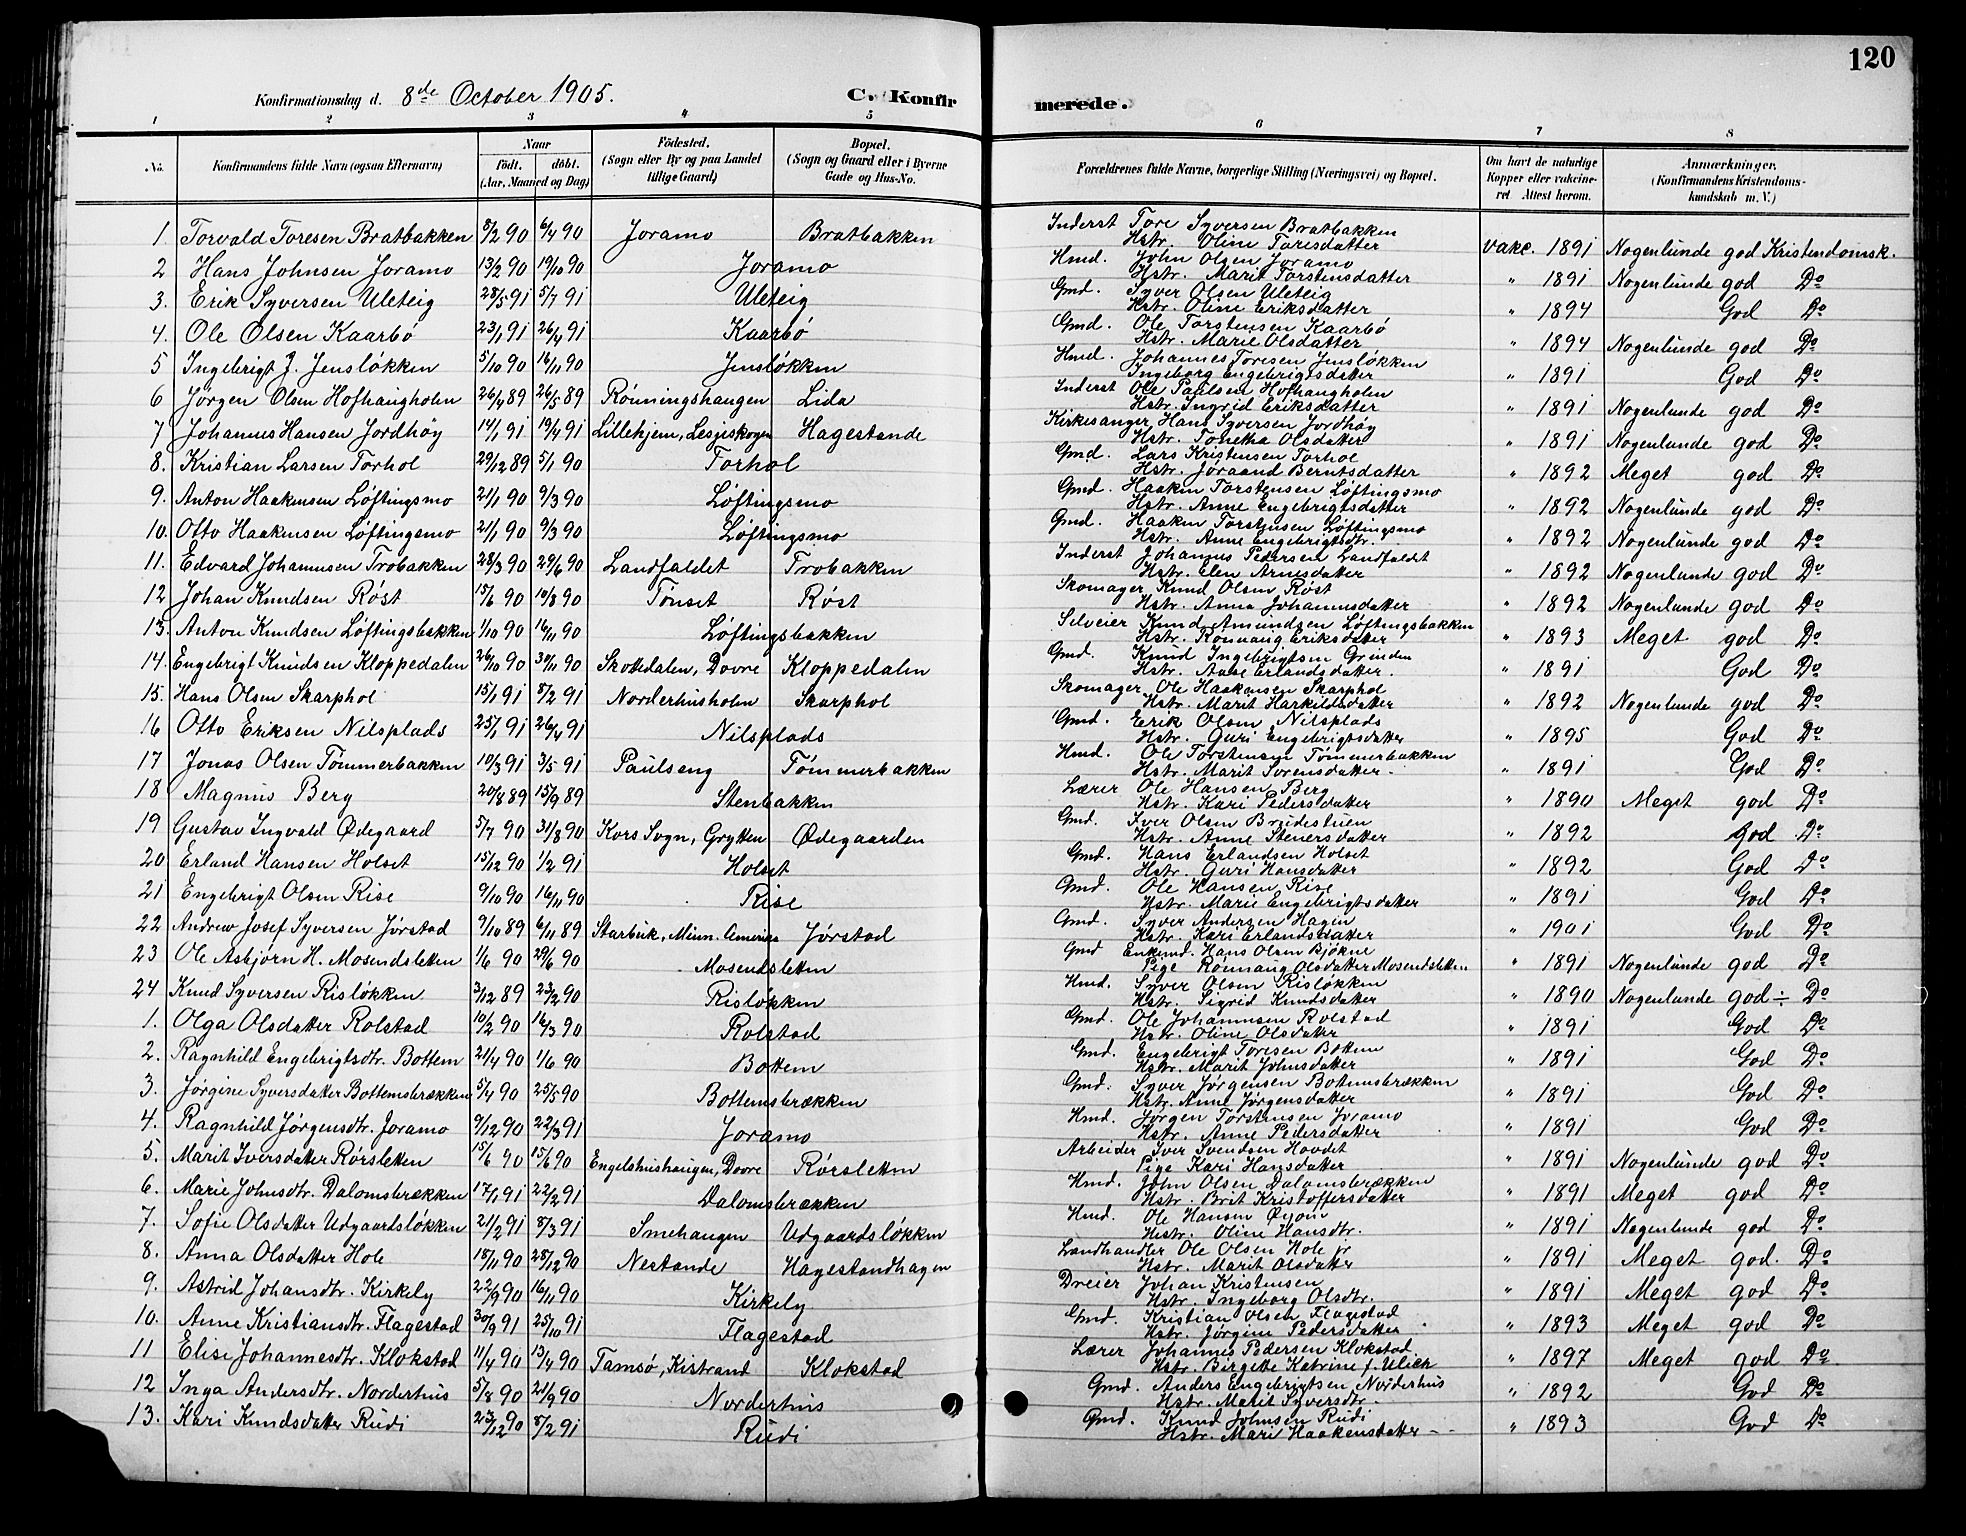 120
Konfirmationsdag d. 8de October 1905. C. Konfirmerede.
1 2 3 4 5 6 7 8
No. Konfirmandens fulde Navn (ogsaa Efternavn) Naar født. døbt. (Aar, Maaned og Dag) Fødested. (Sogn eller By og paa Landet tillige Gaard) Bopæl. (Sogn og Gaard eller i Byerne Gade og Hus-No. Forældrenes fulde Navne, borgerlige Stilling (Næringsvei) og Bopæl. Om havt de naturlige Kopper eller vakcineret Attest herom. Anmærkninger. (Konfirmandens Kristendomskundskab m. V.)
1 Torvald Toresen Bratbakken 8/2 90 6/4 90 Joramo Bratbakken Inderst Tore Syversen Bratbakken Hstr. Oline Toresdatter Vakc. 1891 Nogenlunde god Kristendomsk.
2 Hans Johnsen Joramo 13/2 90 19/10 90 Joramo Hmd. John Olsen Joramo Hstr. Marit Torstensdatter " 1891 Nogenlunde god Do
3. Erik Syversen Uleteig 28/5 91 5/7 91 Uleteig Gmd. Syver Olsen Uleteig Hstr. Oline Eriksdatter " 1894 God Do
4. Ole Olsen Kaarbø 23/1 91 26/4 91 Kaarbø Gmd. Ole Torstensen Kaarbø Hstr. Marie Olsdatter " 1894 Nogenlunde god Do
5 Ingebrigt J. Jensløkken 5/10 90 16/11 90 Jensløkken Hmd. Johannes Toresen Jensløkken Ingeborg Engebrigtsdatter " 1891 God Do
6 Jørgen Olsen Hofhaugholm 26/4 89 26/5 89 Rønningshaugen Lida Inderst Ole Paulsen Hofhaugholen Hstr. Ingrid Eriksdatter " 1891 Nogenlunde god Do
7 Johannes Hansen Jordhøy 14/1 91 19/4 91 Lillehjem, Lesjeskogen Hagestande Kirkesanger Hans Syversen Jordhøy Hstr. Tonetha Olsdatter " 1891 Nogenlunde god Do
8. Kristian Larsen Torhol 29/12 89 5/1 90 Torhol Gmd. Lars Kristensen Torhol Hstr. Joraand Berntsdatter " 1892 Meget god Do
9. Anton Haakensen Løftingsmo 21/1 90 9/3 90 Løftingsmo Gmd. Haaken Torstensen Løftingsmo Hstr. Anne Engebrigtsdatter " 1892 Nogenlunde god Do
10. Otto Haakensen Løftingsmo 21/1 90 9/3 90 Løftingsmo Gmd. Haaken Torstensen Løftingsmo Hstr. Anne Engebrigtsdtr. " 1892 Nogenlunde god Do
11. Edvard Johannesen Trobakken 28/3 90 29/6 90 Landfaldet Trobakken Inderst Johannes Pedersen Landfaldet Hstr. Elen Arnesdatter " 1892 Nogenlunde god Do
12 Johan Knudsen Røst 15/6 90 10/8 90 Tønset Røst Skomager Knud Olsen Røst Hstr. Anna Johannesdatter " 1892 Nogenlunde god Do
13. Anton Knudsen Løftingsbakken 1/10 90 16/11 90 Løftingsbakken Selveier Knud Amundsen Løftingsbakken Hstr. Rønnaug Eriksdatter " 1893 Meget god Do
14. Engebrigt Knudsen Kloppedalen 26/10 90 30/11 90 Skottdalen, Dovre Kloppedalen Gmd. Knud Ingebrigtsen Grinden Hstr. Aase Erlandsdatter. " 1891 God Do
15. Hans Olsen Skarphol 15/1 91 8/2 91 Norderhusholen Skarphol Skomager Ole Haakensen Skarphol Hstr. Marit Harkildsdatter " 1892 Nogenlunde god Do
16 Otto Eriksen Nilsplads 25/1 91 26/4 91 Nilsplads Gmd. Erik Olsen Nilsplads Hstr. Guri Engebrigtsdatter " 1895 God Do
17 Jonas Olsen Tømmerbakken 10/3 91 3/5 91 Paulseng Tømmerbakken Hmd. Ole Torstensen Tømmerbakken Hstr. Marit Sørensdatter " 1891 God Do
18 Magnus Berg 20/8 89 15/9 89 Stenbakken Lærer Ole Hansen Berg Hstr. Kari Pedersdatter " 1890 Meget god Do
19 Gustav Ingvald Ødegaard 5/7 90 31/8 90 Kors Sogn, Grytten Ødegaarden Gmd. Iver Olsen Brudestuen Hstr. Anne Stenersdatter " 1892 God Do
20 Erland Hansen Holset 15/12 90 1/2 91 Holset Gmd. Hans Erlandsen Holset Hstr. Guri Hansdatter " 1892 God Do
21 Engebrigt Olsen Rise 9/10 90 16/11 90 Rise Gmd. Ole Hansen Rise Hstr. Marie Engebrigtsdatter " 1891 God Do
22 Andrew Josef Syversen Jørstad 9/10 89 6/11 89 Starbuk, Minn. Amerika Jørstad Gmd. Syver Andersen Hagen Hstr. Kari Erlandsdatter " 1901 God Do
23 Ole Asbjørn H. Mosendsletten 1/6 90 29/6 90 Mosendsletten Gmd Enkemd. Hans Olsen Bjøkne Pige Rønnaug Olsdatter Mosendsletten " 1891 Nogenlunde god Do
24 Knud Syversen Risløkken 3/12 89 23/2 90 Risløkken Hmd. Syver Olsen Risløkken Hstr. Sigrid Knudsdatter " 1890 Nogenlunde god ÷ Do
1. Olga Olsdatter Rolstad 10/2 90 16/3 90 Rolstad Gmd. Ole Johannesen Rolstad Hstr. Oline Olsdatter " 1891 God Do
2. Ragnhild Engebrigtsdtr. Bottem 21/4 90 1/6 90 Bottem Gmd. Engebrigt Toresen Bottem Hstr. Marit Johnsdatter " 1891 God Do
3. Jørgine Syversdatter Bottemsbrækken 5/4 90 25/5 90 Bottemsbrækken Gmd. Syver Jørgensen Bottemsbrækken Hstr. Anne Jørgensdatter " 1891 God Do
4. Ragnhild Jørgensdtr. Joramo 9/12 90 22/3 91 Joramo Hmd. Jørgen Torstensen Joramo Hstr. Anne Pedersdatter " 1891 God Do
5. Marit Iversdatter Rørsletten 15/6 90 15/6 90 Engelshushaugen, Dovre Rørsletten Arbeider Iver Svendsen Hovdet Pige Kari Hansdatter " 1891 Nogenlunde god Do
6. Marie Johnsdtr. Dalomsbrækken 17/1 91 22/2 91 Dalomsbrækken Hmd. John Olsen Dalomsbrækken Hstr. Brit Kristoffersdatter " 1891 Meget god Do
7. Sofie Olsdatter Udgaardsløkken 21/2 91 8/3 91 Smehaugen Udgaardsløkken Hmd. Ole Hansen Hstr. Oline Hansdtr. " 1891 Nogenlunde god Do
8. Anna Olsdatter Hole 18/11 90 28/12 90 Nestande Hagestandhagen Landhandler Ole Olsen Hole jr Hstr. Marit Olsdatter " 1891 Meget god. Do
9. Astrid Johansdtr. Kirkely 22/9 90 16/11 90 Kirkely Dreier Johan Kristensen Hstr. Ingeborg Olsdtr. " 1891 Meget god Do
10. Anne Kristiansdtr. Flagestad 30/9 91 25/10 91 Flagestad Gmd. Kristian Olsen Flagestad Hstr. Jørgine Pedersdatter " 1893 Meget god Do
11 Elise Johannesdtr. Klokstad 11/4 90 13/4 90 Tamsø, Kistrand Klokstad Lærer Johannes Pedersen Klokstad Hstr. Birgitte Katrine f. Ulich " 1897 Meget god Do
12 Inga Andersdtr. Norderhus 5/8 90 21/9 90 Norderhus Gmd. Anders Engebrigtsen Norderhus Hstr. Marit Syversdtr. " 1892 God Do
13. Kari Knudsdatter Rudi 23/12 90 8/2 91 Rudi Gmd. Knud Johnsen Rudi Hstr. Mari Haakensdatter " 1893 God Do